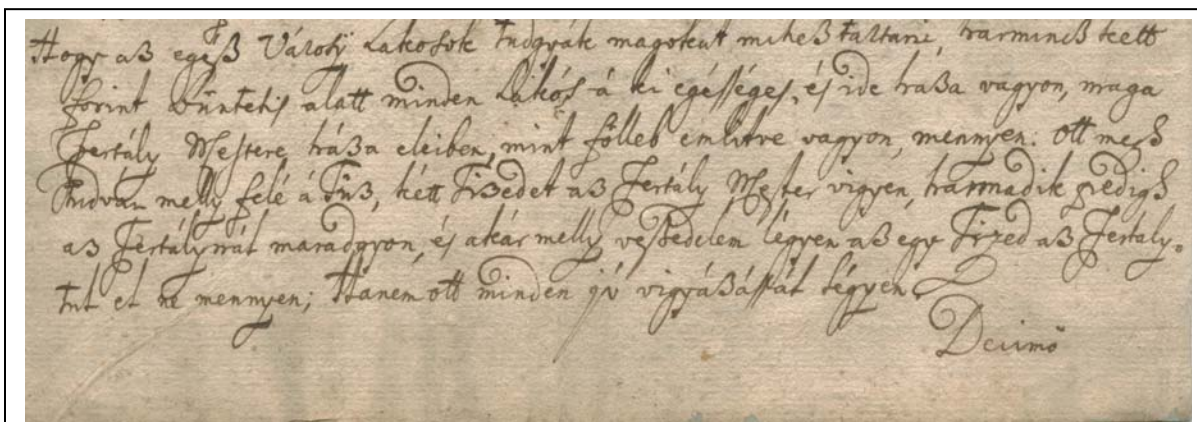 Hogy aß egéß Városÿ Lakosok tudgyák magokat miheß tartani, harmincß kett
forint büntetés alatt minden Lakós á ki egésséges, és ide haßa vagyon, maga
Fertály Mestere háßa eleiben, mint följeb emlitve vagyon, mennyen. Ott megh
tudván melly felé á Tüß, kétt Tizedet aß Fertály Mester vigyen, harmadik pedigh
aß Fertálynál maradgyon, és akár melly veßedelem légyen aß egy Tized aß Fertály-
tul el ne mennyen; Hanem ott minden jó vigyáßással légyen.
Decimo